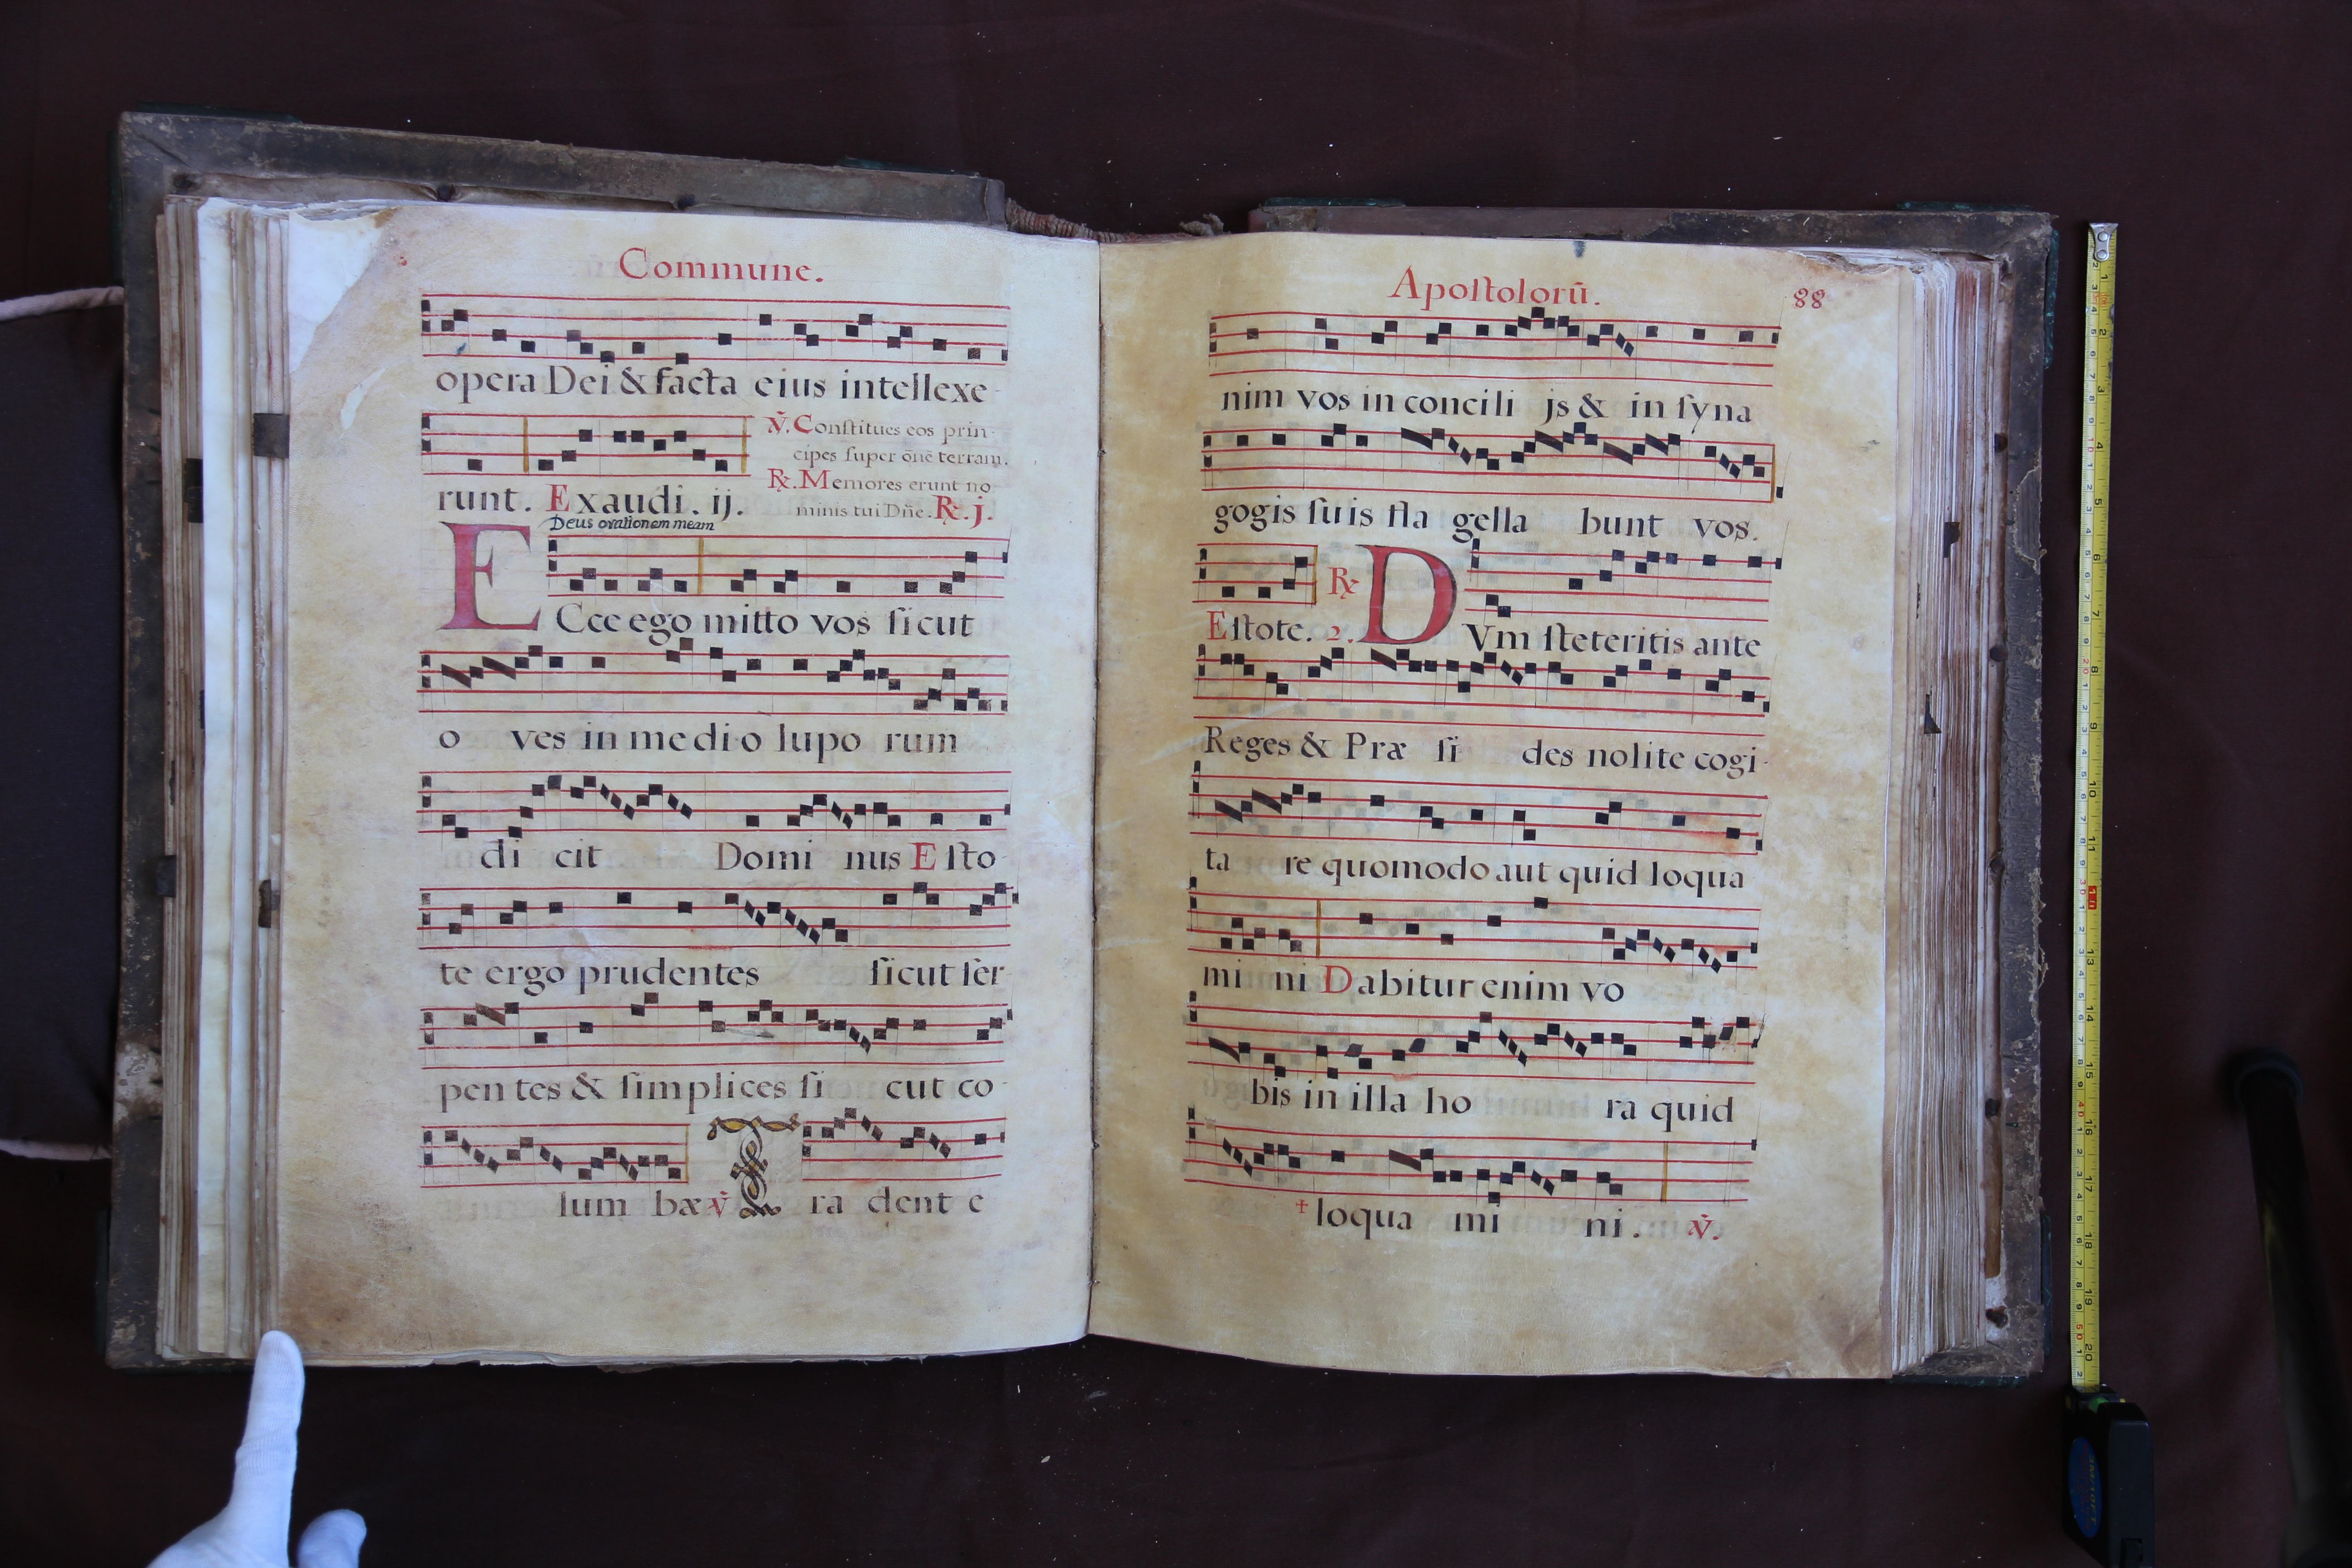 Commune.
opera Dei & facta eius intellexe-
runt. Exaudi. ij.
Deus orationem meam
℣. Conſtitues eos prin-
cipes ſuper õnē terram.
℞. Memores erunt no
minis tui Dñe. ℞. j.
ECce ego mitto vos ſicut
o ves in medio lupo rum
di cit Domi nus Eſto-
te ergo prudentes ſicut ſer-
pen tes & ſimplices ſi cut co-
lum bæ ℣ Tra dent e
Apoſtolorū. 88
nim vos in concili js & in ſyna
gogis ſuis fla gella bunt vos.
Eſtote. 2. ℞ DVm ſteteritis ante
Reges & Præ ſi des nolite cogi-
ta re quomodo aut quid loqua
mi ni Dabitur enim vo
bis in illa ho ra quid
† loqua mi ni. ℣.